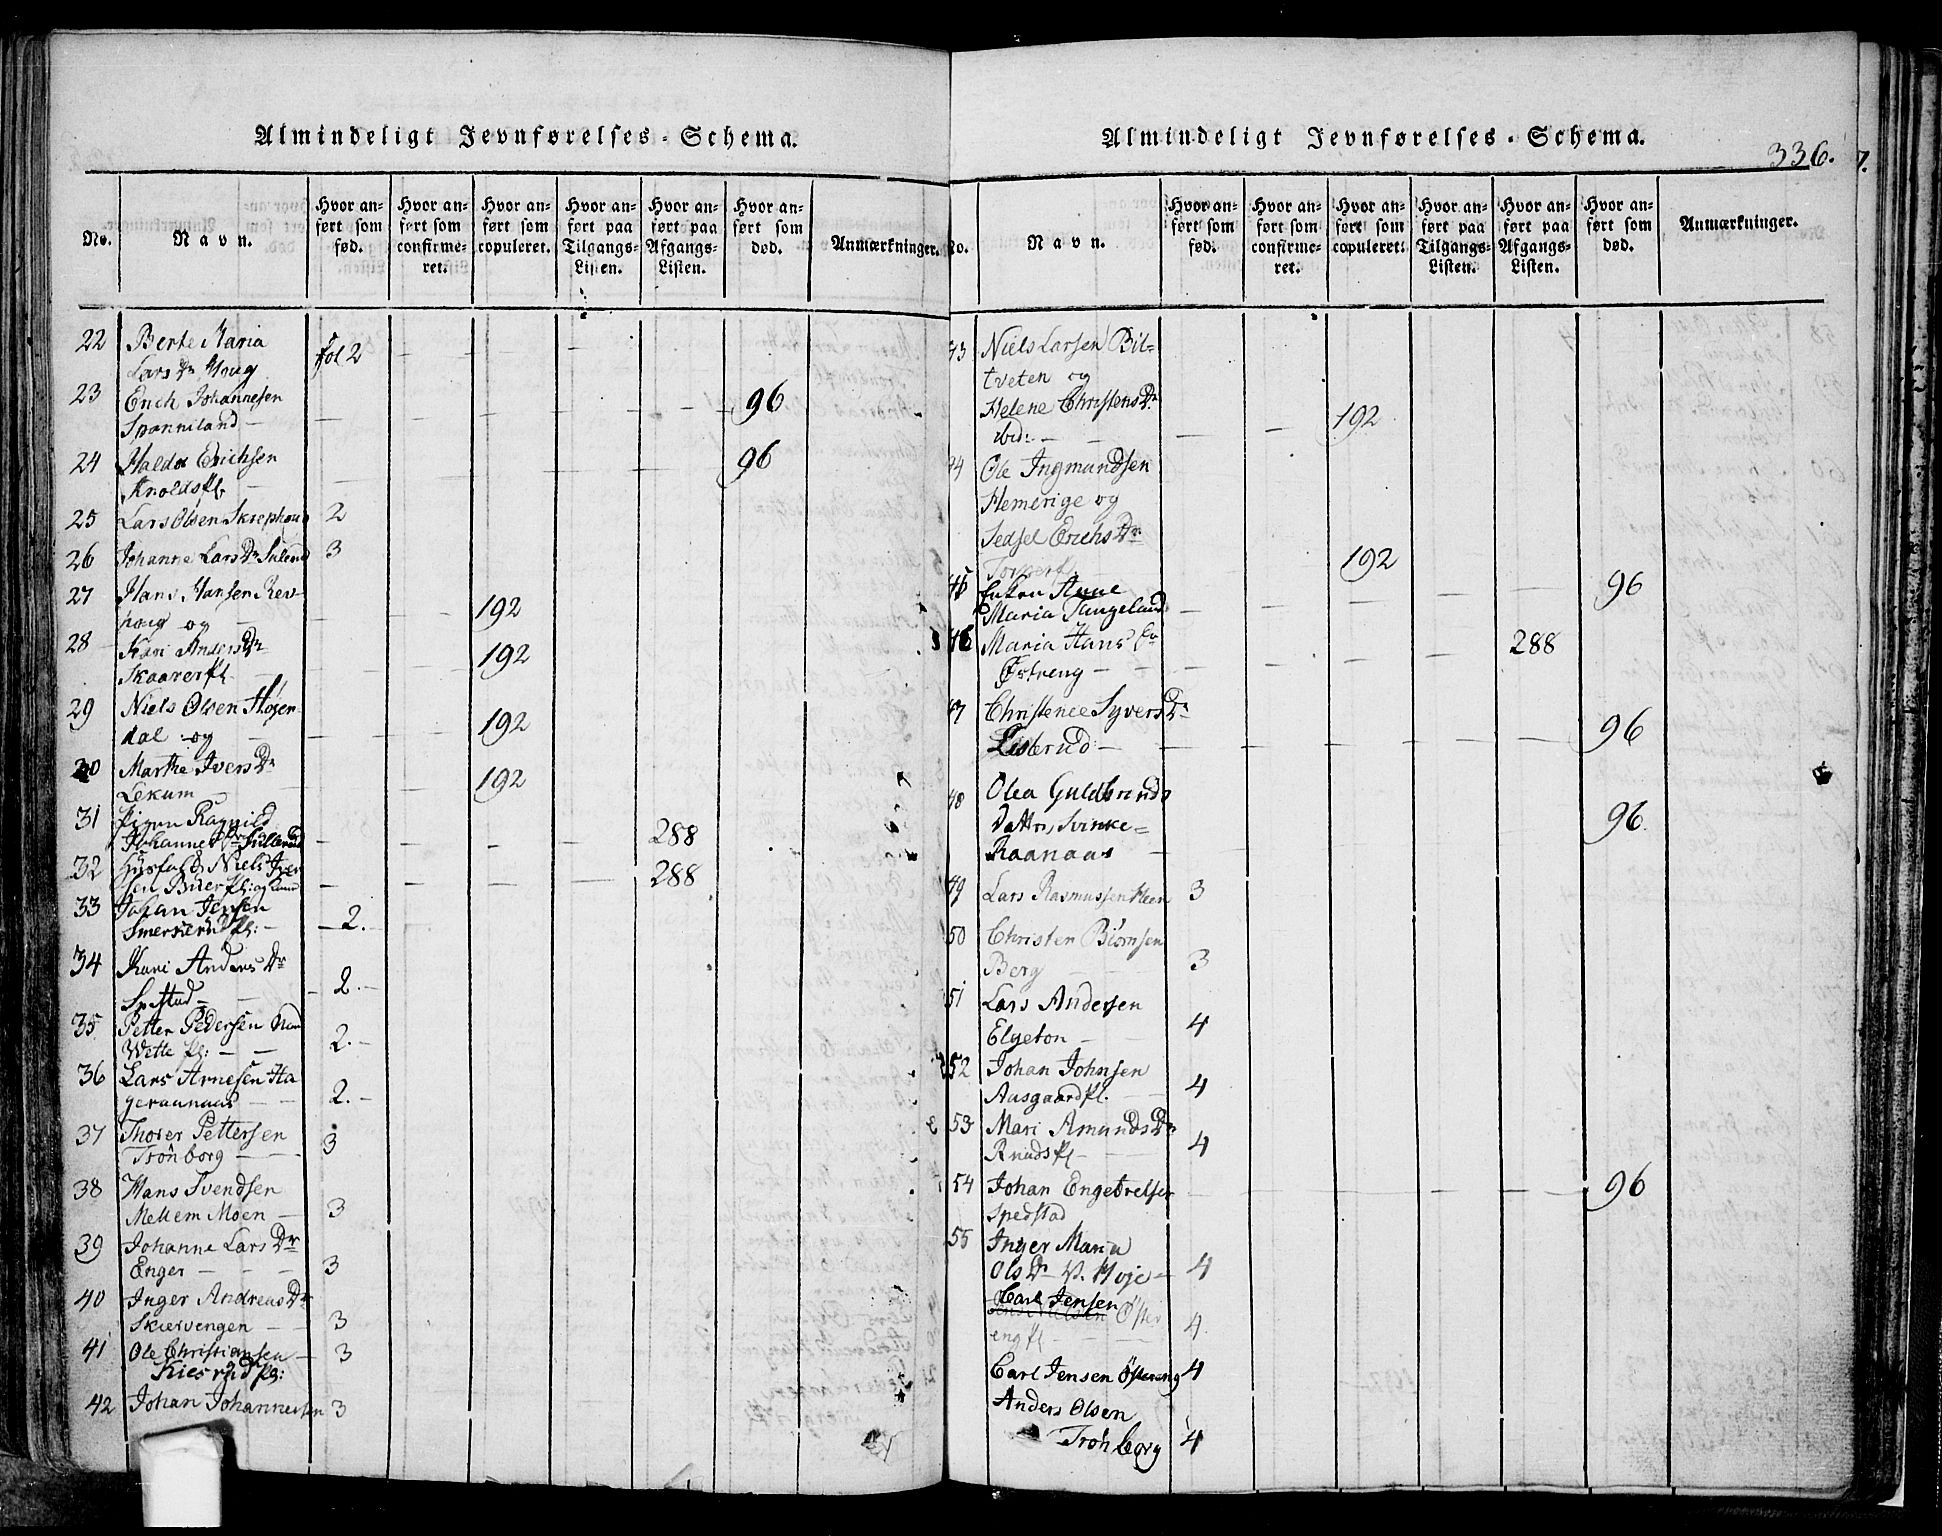 Almindeligt Jevnførelses-Schema.
No.
Navn.
Hvor an-
ført som
fød.
Hvor an-
ført som
confirme-
ret.
Hvor an-
ført som
copuleret.
Hvor an-
ført paa
Tilgangs-
Listen.
Hvor an-
ført paa
Afgangs-
Listen.
Hvor an-
ført som
død.
Anmærkninger.
22 Berte Maria
Lars Dr Houg fol 2
23 Erich Johannesen
Spanniland — 96
24 Erichsen
Knoldspl — 96
25 Lars Olsen 2
26 Johanne Lars Dr 3
27 Hans Hansen Rev-
houg og — 192
28 Kari Anders Dr
Skaarerpl — 192
29 Niels Olsen Høgen-
dal og — 192
30 Marthe Ivers Dr
Lekum — 192
31 Pigen Ragnild
Johannes Dr — 288
32 Niels Iver
sen — 288
33 Johan Jensen
pl: — 2.
34 Kari Anders Dr
— 2.
35 Petter Pedersen
Wette pl: — 2.
36 Lars Arnesen Ha
geraanaas — 2.
37 Thorer Pettersen
Trönborg — 3
38 Hans Svendsen
Mellem Moen — 3
39 Johanne Lars Dr
Enger — 3
40 Inger Andreas Dr
Skiervengen — 3
41 Ole Christiansen — 3
Kiesrud pl:
42 Johan Johannessen 3
Almindeligt Jevnførelses-Schema.
336.
No.
Navn.
Hvor an-
ført som
fød.
Hvor an-
ført som
confirme-
ret.
Hvor an-
ført som
copuleret.
Hvor an-
ført paa
Tilgangs-
Listen.
Hvor an-
ført paa
Afgangs-
Listen.
Hvor an-
ført som
død.
Anmærkninger.
43 Niels Larsen Bil-
tveten og
Helene Christens Dr
ibid: — 192
44 Ole Ingmundsen
Hemerige og
Sedsel Erichs Dr
192
45 Enken Anne
Maria Tangeland — 96
46 Maria Hans Dr
Østreng — 288
47 Christence Syvers Dr
Listerud — 96
48 Olea Guldbrands
Datter, Svinke-
Raanaas — 96
49 Lars Rasmussen 3
50 Christen Biörnsen
Berg 3
51 Lars Andersen
Elgeton — 4
52 Johan Johnsen
Aasgaardpl. — 4
53 Mari Amunds Dr
Knudspl — 4
54 Johan Engebretsen — 96
Spedstad
55 Inger Maria
Ols Dr V. Høje — 4
Carl Jensen
Öster
engpl — 4
Carl Jensen Östereng 4
Anders Olsen
Trönborg 4